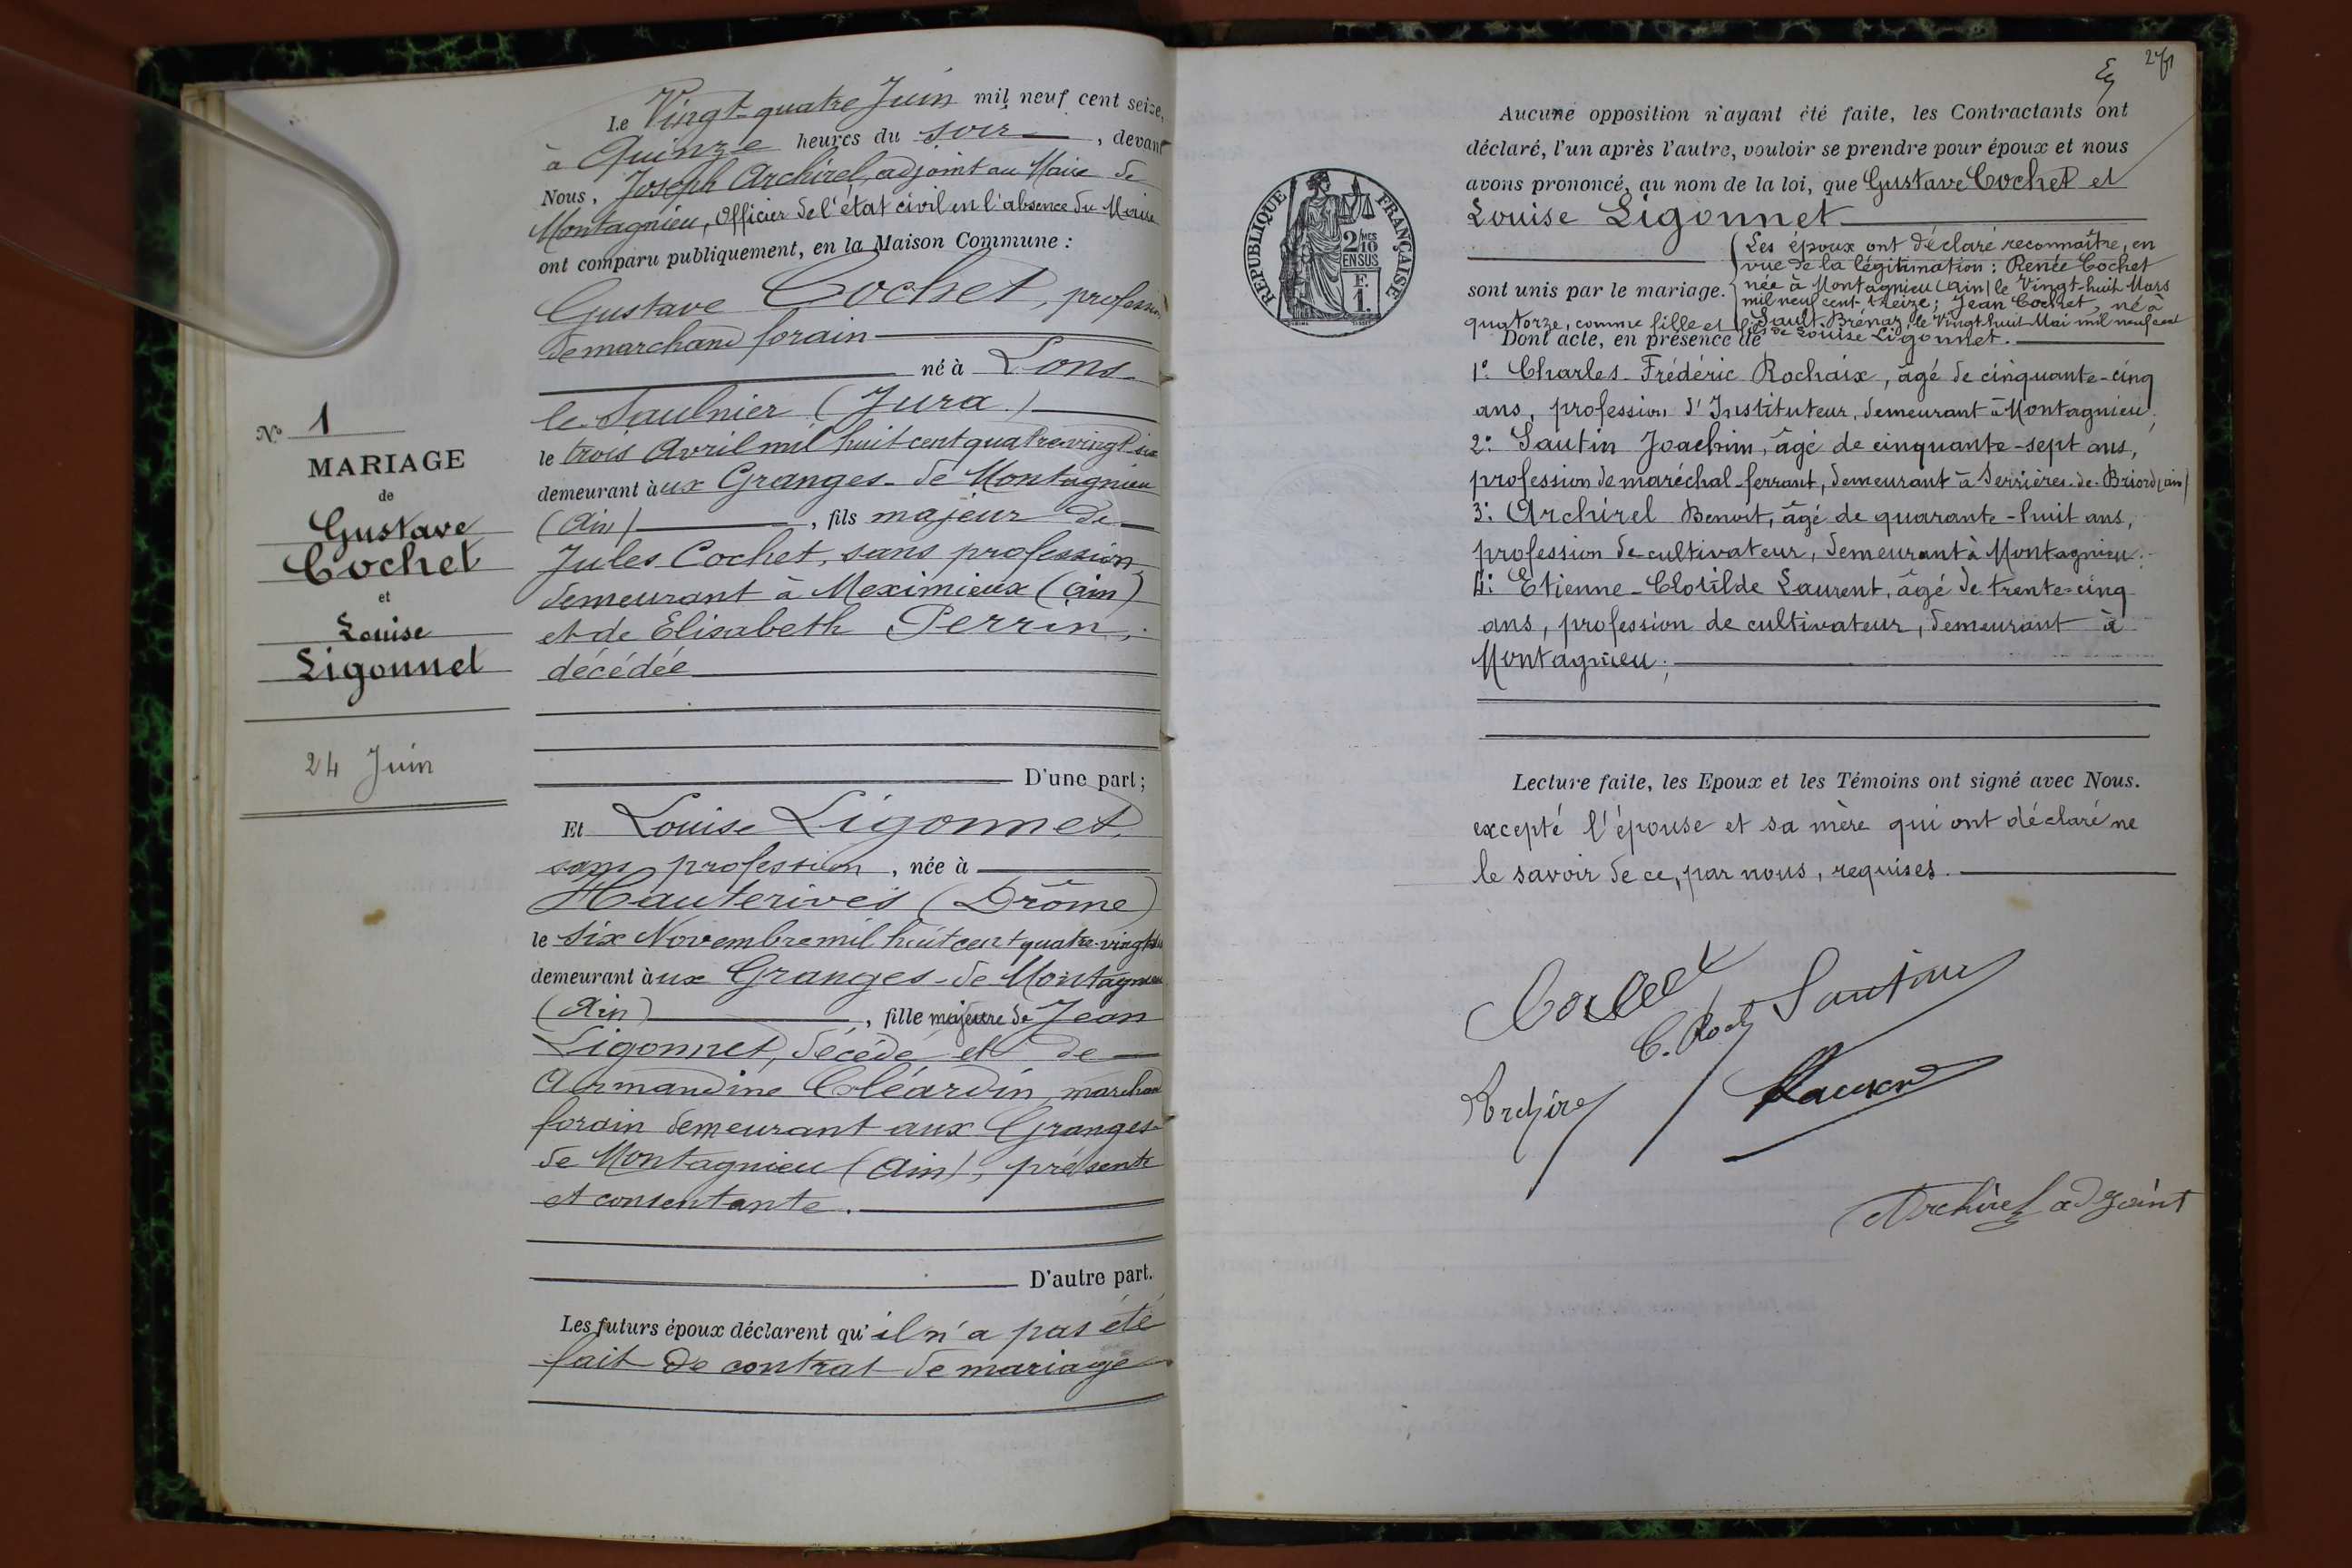 Le Vingt-quatre Juin mil neuf cent seize,
à Quinze heures du soir, devant
Nous, Joseph Archirel, adjoint au Maire de
Montagnieu, Officier de l'état civil en l'absence du Maire
ont comparu publiquement, en la Maison Commune :
Gustave Cochet, profession
de marchand forain
né à Lons-
le-Saulnier (Jura)
le trois Avril mil huit cent quatre-vingt-six
demeurant aux Granges-de Montagnieu
(Ain), fils majeur de
Jules Cochet, sans profession,
demeurant à Meximieux (Ain)
et de Elisabeth Perrin,
décédée
D'une part;
Et Louise Ligonnet,
sans profession, née à
Hauterives (Drôme)
le six Novembre mil huit cent quatre-vingt
demeurant aux Granges-de-Montagnieu
(Ain), fille majeure de Jean
Ligonnet, décédé et de
Armandine Cléardin, marchand
forain demeurant aux Granges-
de Montagnieu (Ain), présente
et consentante.
D'autre part.
Les futurs époux déclarent qu'il n'a pas été
fait de contrat de mariage
N° 1
MARIAGE
de
Gustave
Cochet
et
Louise
Ligonnet
24 Juin
Aucune opposition n'ayant été faite, les Contractants ont
déclaré, l'un après l'autre, vouloir se prendre pour époux et nous
avons prononcé, au nom de la loi, que Gustave Cochet et
Louise Ligonnet
sont unis par le mariage.
Les époux ont déclaré reconnaître, en
vue de la légitimation : Renée Cochet
née à Montagnieu (Ain) le Vingt-huit Mars
mil neuf cent-treize; Jean Cochet, né à
Sault-Brénaz, le Vingt huit Mai mil neuf cent
quatorze, comme fille et fils de Louise Ligonnet.
Dont acte, en présence de
1° Charles-Frédéric Rochaix, âgé de cinquante-cinq
ans, profession d'Instituteur, demeurant à Montagnieu;
2° Sautin Joachim, âgé de cinquante-sept ans,
profession de maréchal-ferrant, demeurant à Serrières-de-Briord (Ain)
3° Archirel Benoit, âgé de quarante-huit ans,
profession de cultivateur, demeurant à Montagnieu.
4° Etienne-Clotilde Laurent, âgé de trente-cinq
ans, profession de cultivateur, demeurant à
Montagnieu;
Lecture faite, les Epoux et les Témoins ont signé avec Nous.
excepté l'épouse et sa mère qui ont déclaré ne
le savoir de ce, par nous, requises.
Cochet
Sautin
C. Roch
Archirel
Laurent
Archirel adjoint
REPUBLIQUE FRANÇAISE
2/10 MES
EN SUS
F.
1.